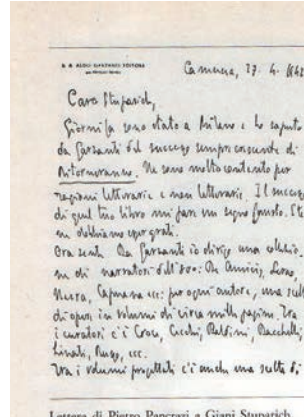 S. A. ALDO GARZANTI EDITORE
Camucia, 27. 4. 1942
Caro Stuparich,
Giorni fa sono stato a Milano e ho saputo
da Garzanti del successo sempre crescente di
Ritorneranno. Ne sono molto contento per
ragioni letterarie e non letterarie. Il success
di quel tuo libro mi pare un segno fausto. E te
ne dobbiamo esser grati.
Ora senti. Da Garzanti io dirigo una collezio-
ne di narratori dell'800: De Amicis,
Neera, Capuana ecc: per ogni autore, una scelt
di opere in volumi di circa mille pagine. Tra
i curatori c'è Croce, Cecchi, Baldini, Bacchelli,
Linati, Russo, ecc.
Tra i volumi progettati c'è anche una scelta di
Lettera di Pietro Pancrazi a Giani Stuparich